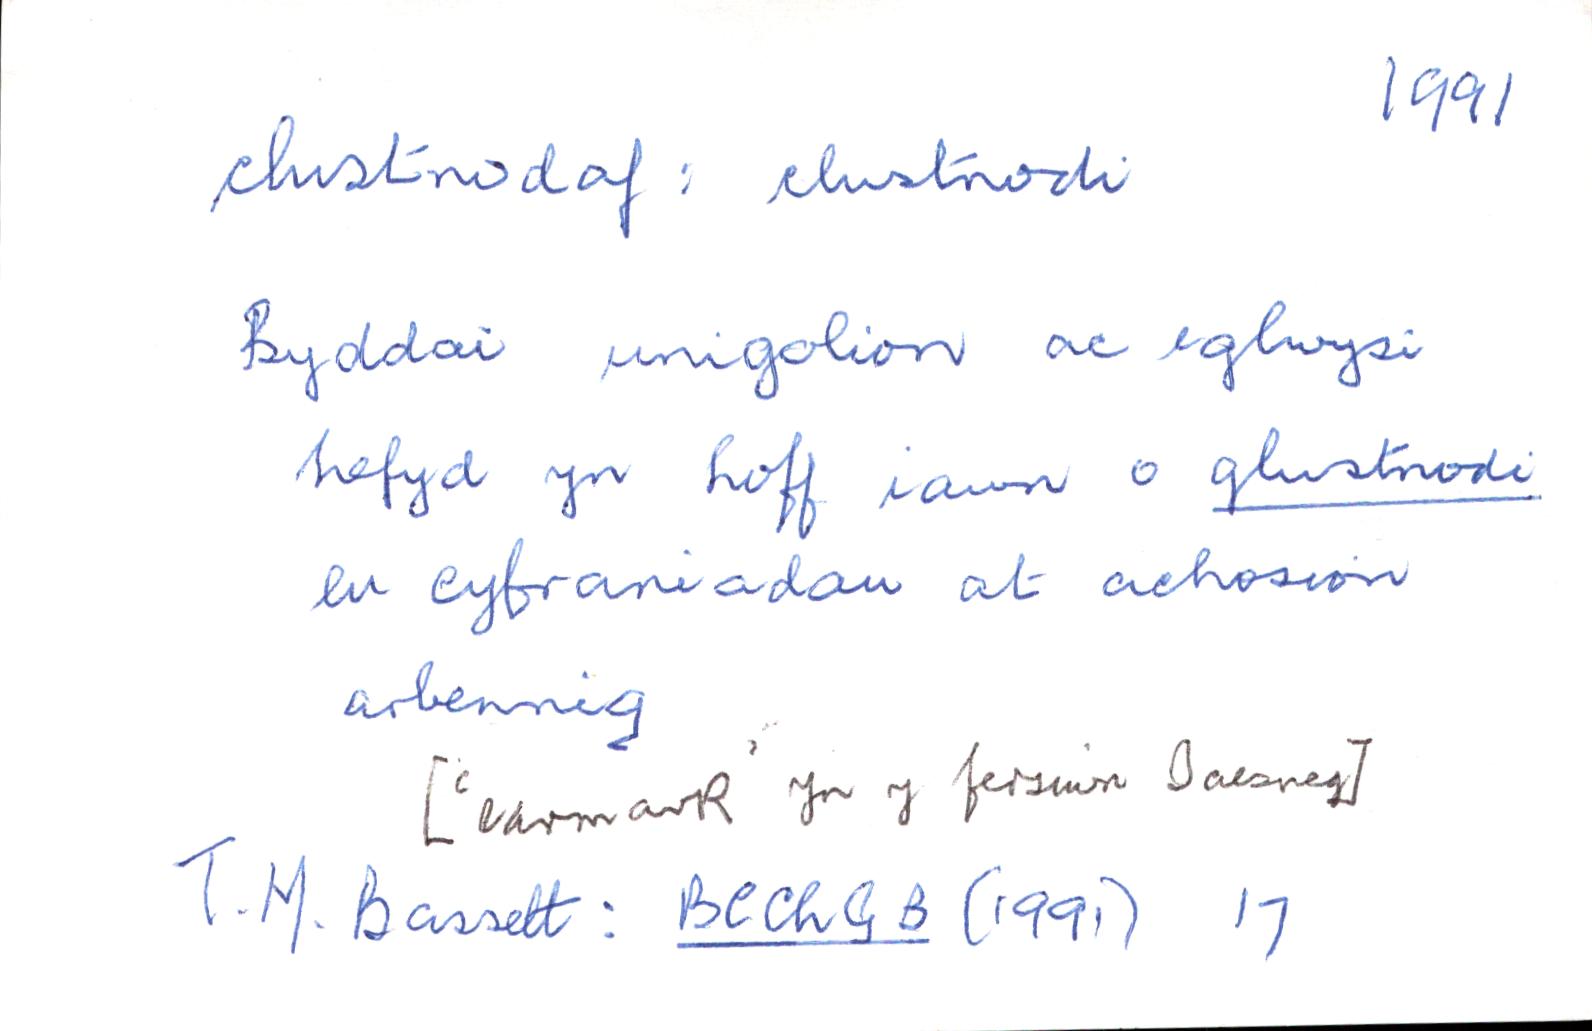 1991
clustnodaf : clustnodi
Byddai unigolion ac eglwysi
hefyd yn hoff iawn o glustnodi
eu cyfraniadau at achosion
arbennig
['earmark' yn y fersiwn Saesneg]
T.M. Bassett: BCChGB (1991) 17